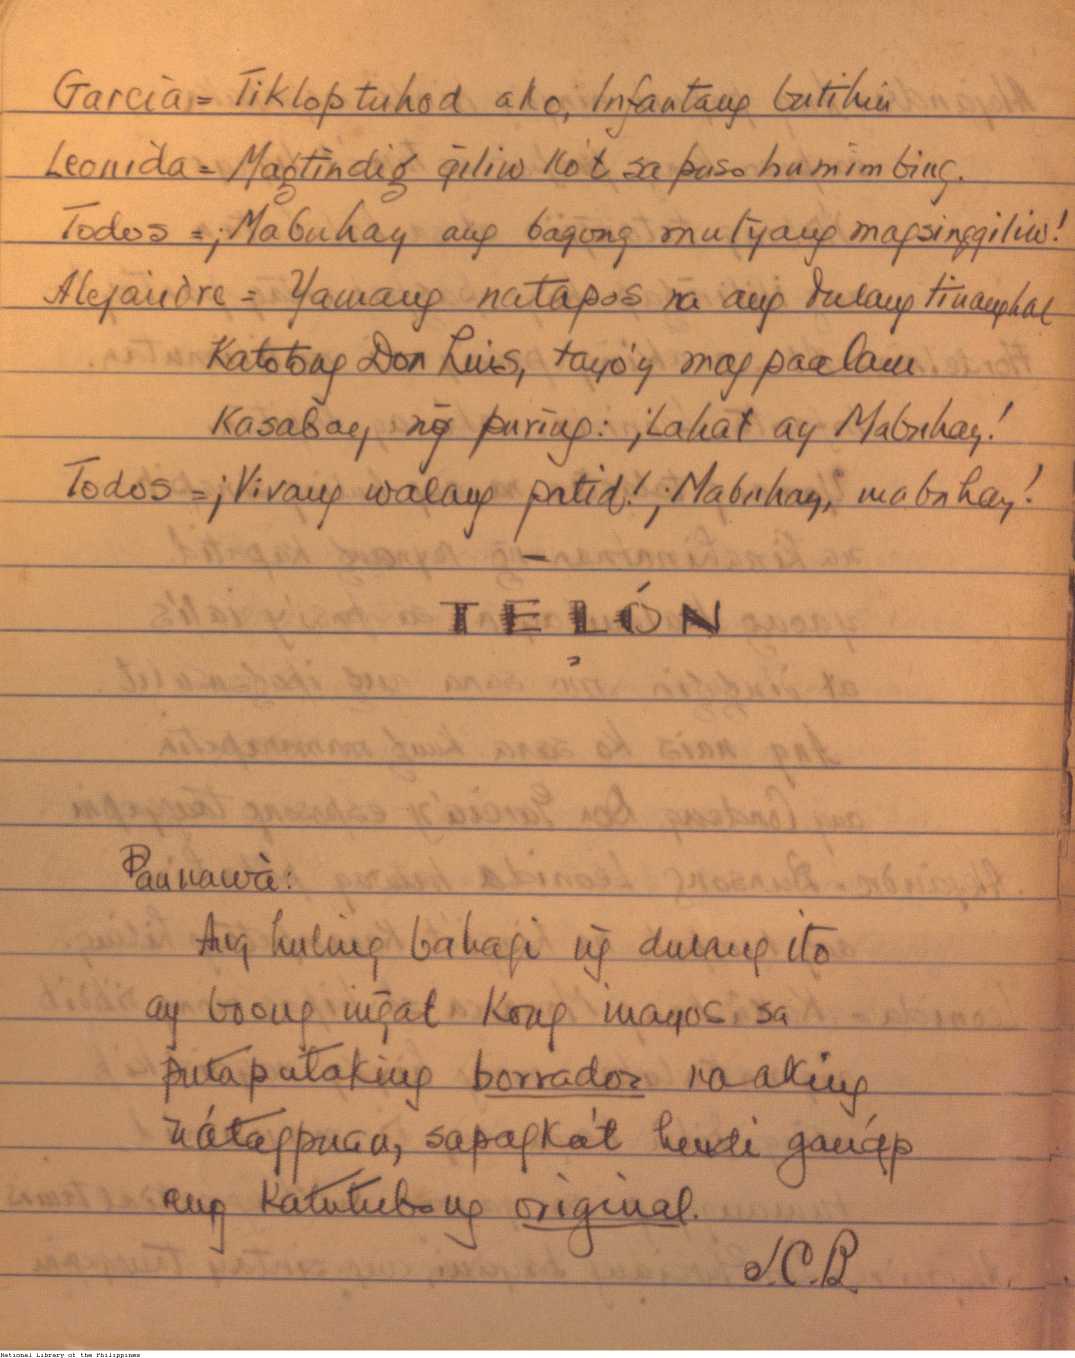 Garcia = Tikloptuhod ako, Infantang butihin
Leonida = Magtindig giliw ko't sa puso humimbing.
Todos = ¡Mabuhay ang bagong mutyang magsinggiliw!
Alejandre = Yamang natapos na ang dulang tinanghal
Katotong Don Luis, tayo'y magpaalam
Kasabay ng̃ puring: ¡Lahat ay Mabuhay!
Todos = ¡Vivang walang patid! ¡Mabuhay, mabuhay!
—
TELÓN
Paunawà:
Ang huling bahagi ng̃ dulang ito
ay boong ing̃at kong inayos sa
putaputaking borrador na aking
nátagpuan, sapagkát hindi ganáp
ang katutubong original.
J.C.B
National Library of the Philippines